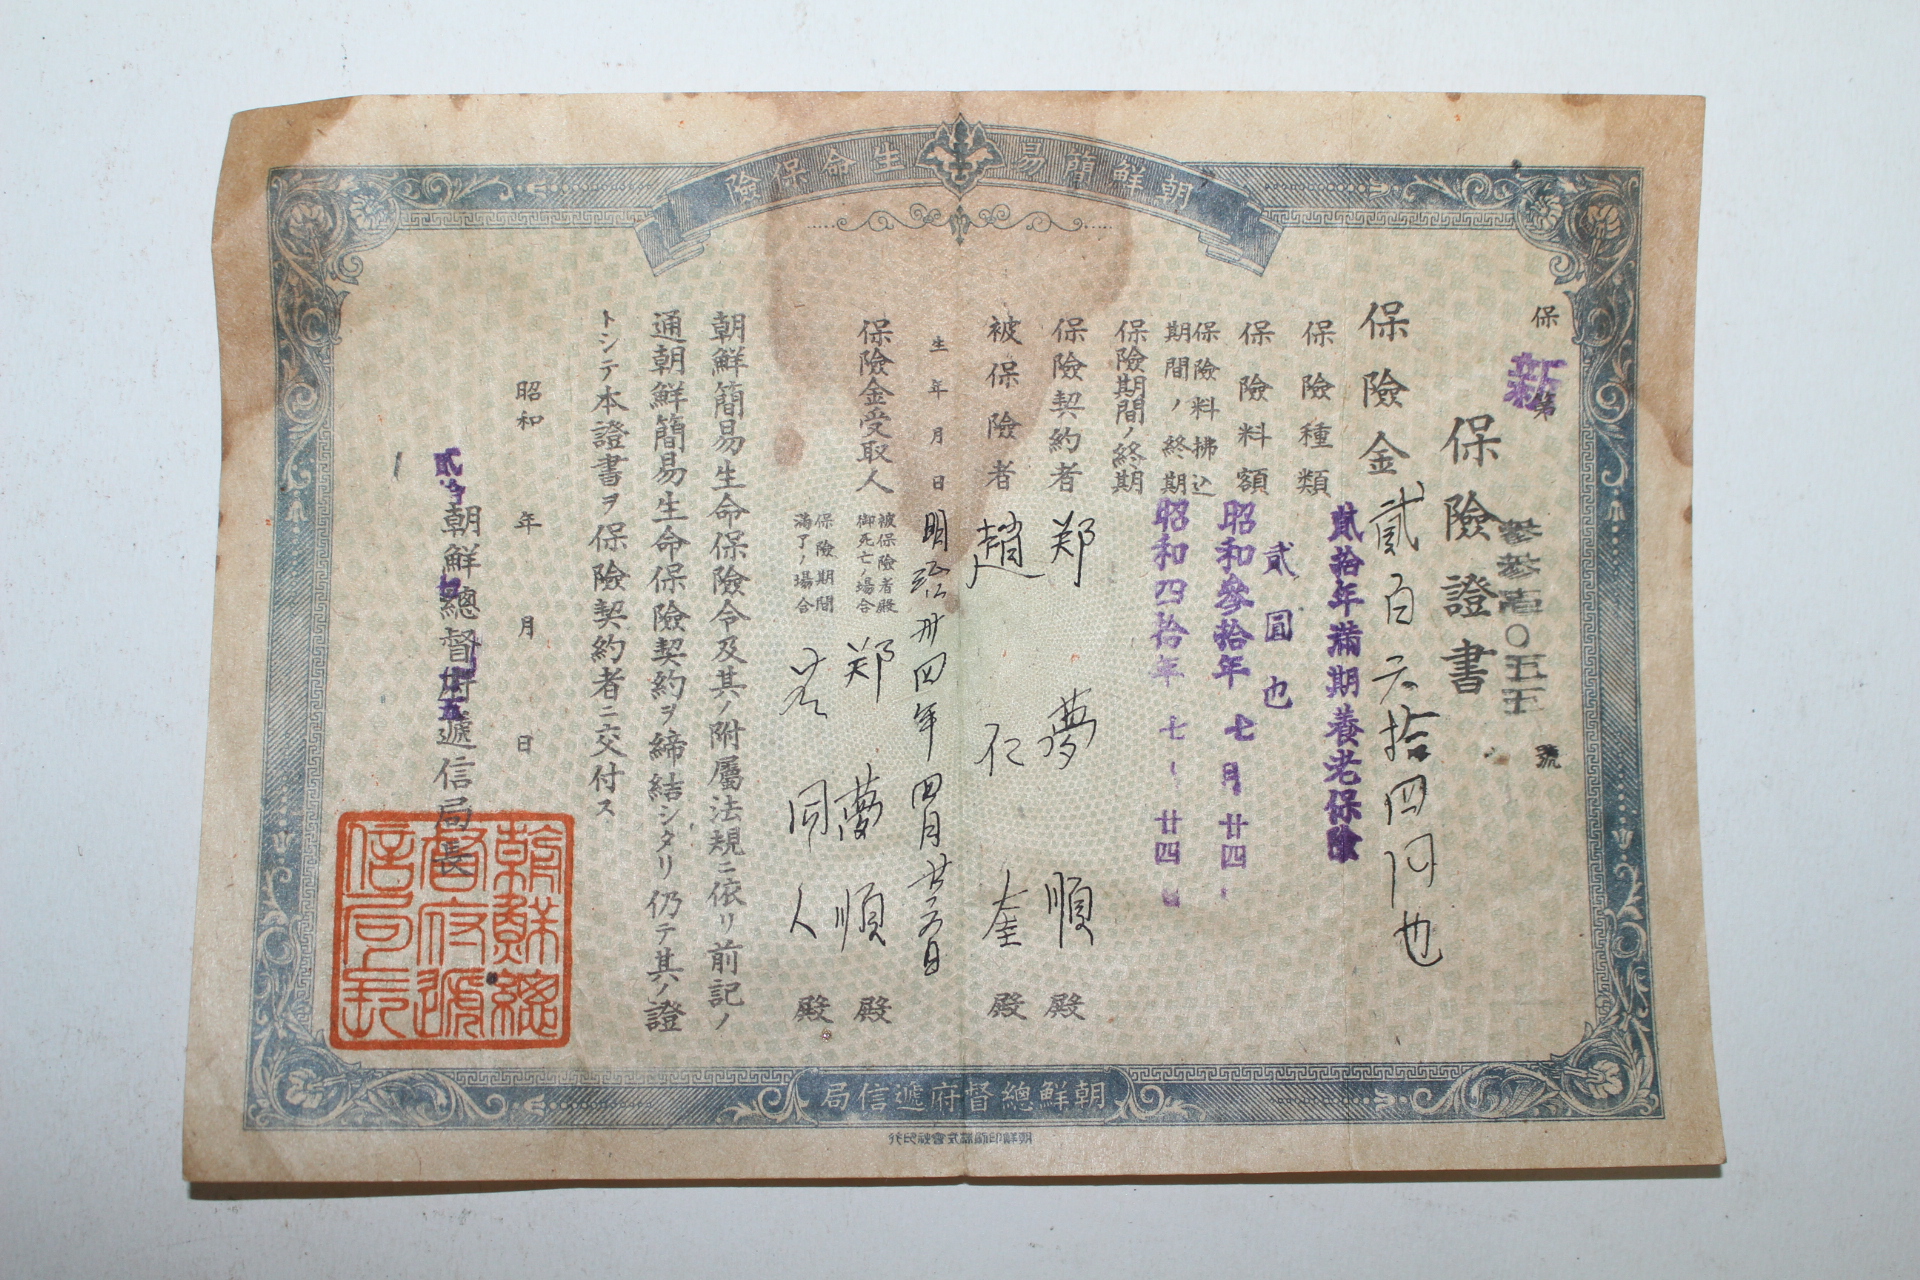 朝鮮簡易生命保險
保 新 第 參參壱〇五五 號
保險證書
保險金 貳百六拾四円也
保險種類 貳拾年滿期養老保險
保險料額 貳圓也
保險料拂込期間ノ終期 昭和參拾年七月廿四
保險期間ノ終期 昭和四拾年七 廿四日
保險契約者 郑夢順 殿
被保險者 趙仁奎 殿
生年月日 明治卅四年四月廿六日
保險金受取人
被保險者殿御死亡ノ場合 郑夢順 殿
保險期間滿了ノ場合 同人 殿
朝鮮簡易生命保險令及其ノ附屬法規ニ依リ前記ノ
通朝鮮簡易生命保險契約ヲ締結シタリ仍テ其ノ證
トシテ本證書ヲ保險契約者ニ交付ス
昭和 年 月 日
朝鮮總督府遞信局長
朝鮮總督府遞信局長
朝鮮總督府遞信局
朝鮮印刷株式會社印行